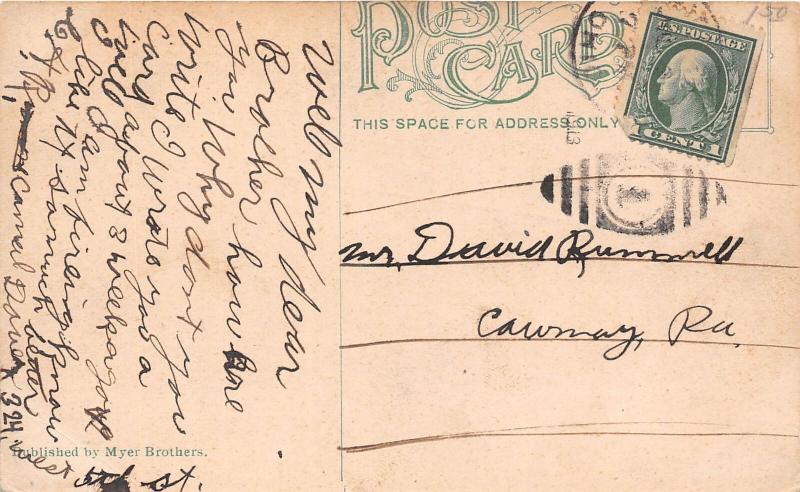 POST
CARD
THIS SPACE FOR ADDRESS ONLY
U.S. POSTAGE
1 CENT 1
150
Well my dear
Brother how are
you Why dont you
write I wrote you a
Card about 2 weeks ago
I am fireing now
I like it so much better
Canal Dover
324, west
5th st.
Mr, David Rummell
Cawmay, Pa,
Published by Myer Brothers.